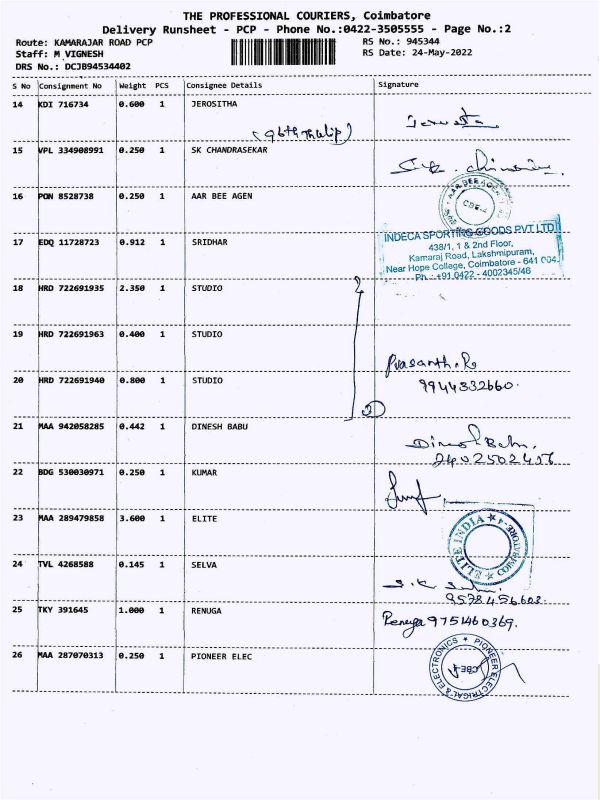 THE PROFESSIONAL COURIERS, Coimbatore
Delivery Runsheet - PCP - Phone No.:0422-3505555 - Page No.:2
Route: KAMARAJAR ROAD PCP
RS No.: 945344
Staff: M VIGNESH
RS Date: 24-May-2022
DRS No.: DCJB94534402
S No Consignment No Weight PCS Consignee Details Signature
14 KDI 716734 0.600 1 JEROSITHA
15 VPL 334908991 0.250 1 SK CHANDRASEKAR
16 PON 8528738 0.250 1 AAR BEE AGEN
AAR BEE AGEN
CBE-4
17 EDQ 11728723 0.912 1 SRIDHAR
INDECA SPORTING GOODS PVT LTD
438/1, 1 & 2nd Floor,
Kamaraj Road, Lakshmipuram,
Near Hope College, Coimbatore - 641 004.
Ph.: +91 0422 - 4002345/46
18 HRD 722691935 2.350 1 STUDIO
19 HRD 722691963 0.400 1 STUDIO
Prasanth.R
20 HRD 722691940 0.800 1 STUDIO
9944332660.
3
21 MAA 942058285 0.442 1 DINESH BABU
Dinesh Babu.
22 BDG 530030971 0.250 1 KUMAR
23 MAA 289479858 3.600 1 ELITE
ELITE INDIA COIMBATORE-4
24 TVL 4268588 0.145 1 SELVA
9578456603.
25 TKY 391645 1.000 1 RENUGA
Renuga 9751460369.
26 MAA 287070313 0.250 1 PIONEER ELEC
PIONEER ELECTRICAL & ELECTRONICS